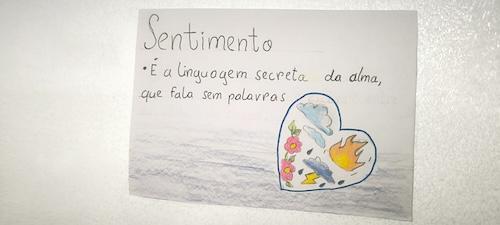 Sentimento
• É a linguagem secreta da alma,
que fala sem palavras